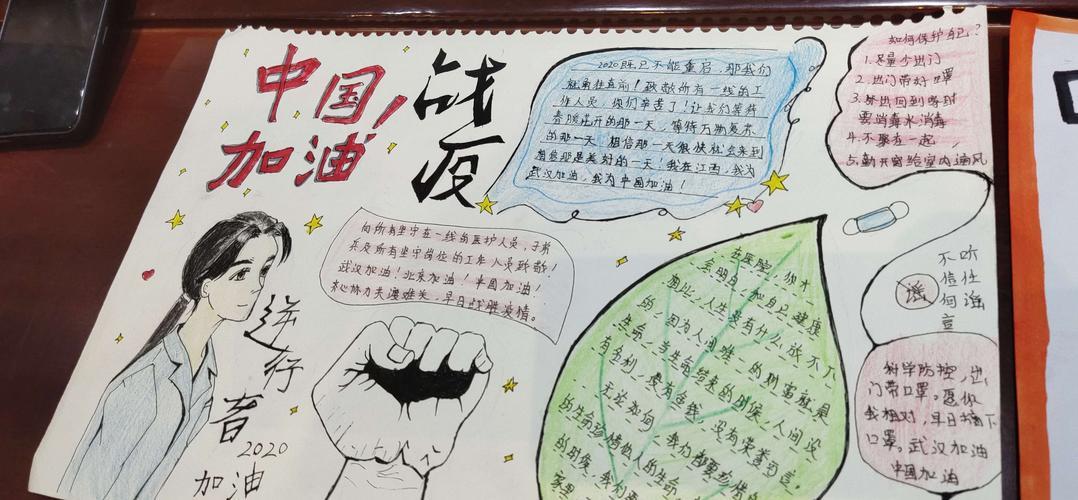 中国
加油
战
疫
2020既已不能重启，那我们
就勇往直前！致敬所有一线的工
作人员，你们辛苦了！让我们等待
春暖花开的那一天，等待万物复苏
的那一天。相信那一天很快就会来到
相信那是美好的一天！我在江西，我为
武汉加油，我为中国加油！
如何保护自己？
1.尽量少出门
2.出门带好口罩
3.外出回到家时
要消毒水消毒
4.不聚在一起，
5.勤开窗给室内通风
向所有坚守在一线的医护人员，子弟
兵及所有坚守岗位的工作人员致敬！
武汉加油！北京加油！中国加油！
齐心协力共渡难关，早日战胜疫情。
逆
行
者
2020
加油
在医院，你才
会明白，和自己健康
相比，人生没有什么放不下
的，因为人间唯一的财富就是
生命，当生命结束的时候，人间没
有名利，没有金钱，没有荣誉可言。
无论如何，我们都要珍惜自
的生命珍惜他人的生命，
的时候，我们要
家里
不听
信任
何谣
言
谣
科学防控，出
门带口罩。愿你
我相对，早日摘下
口罩。武汉加油
中国加油